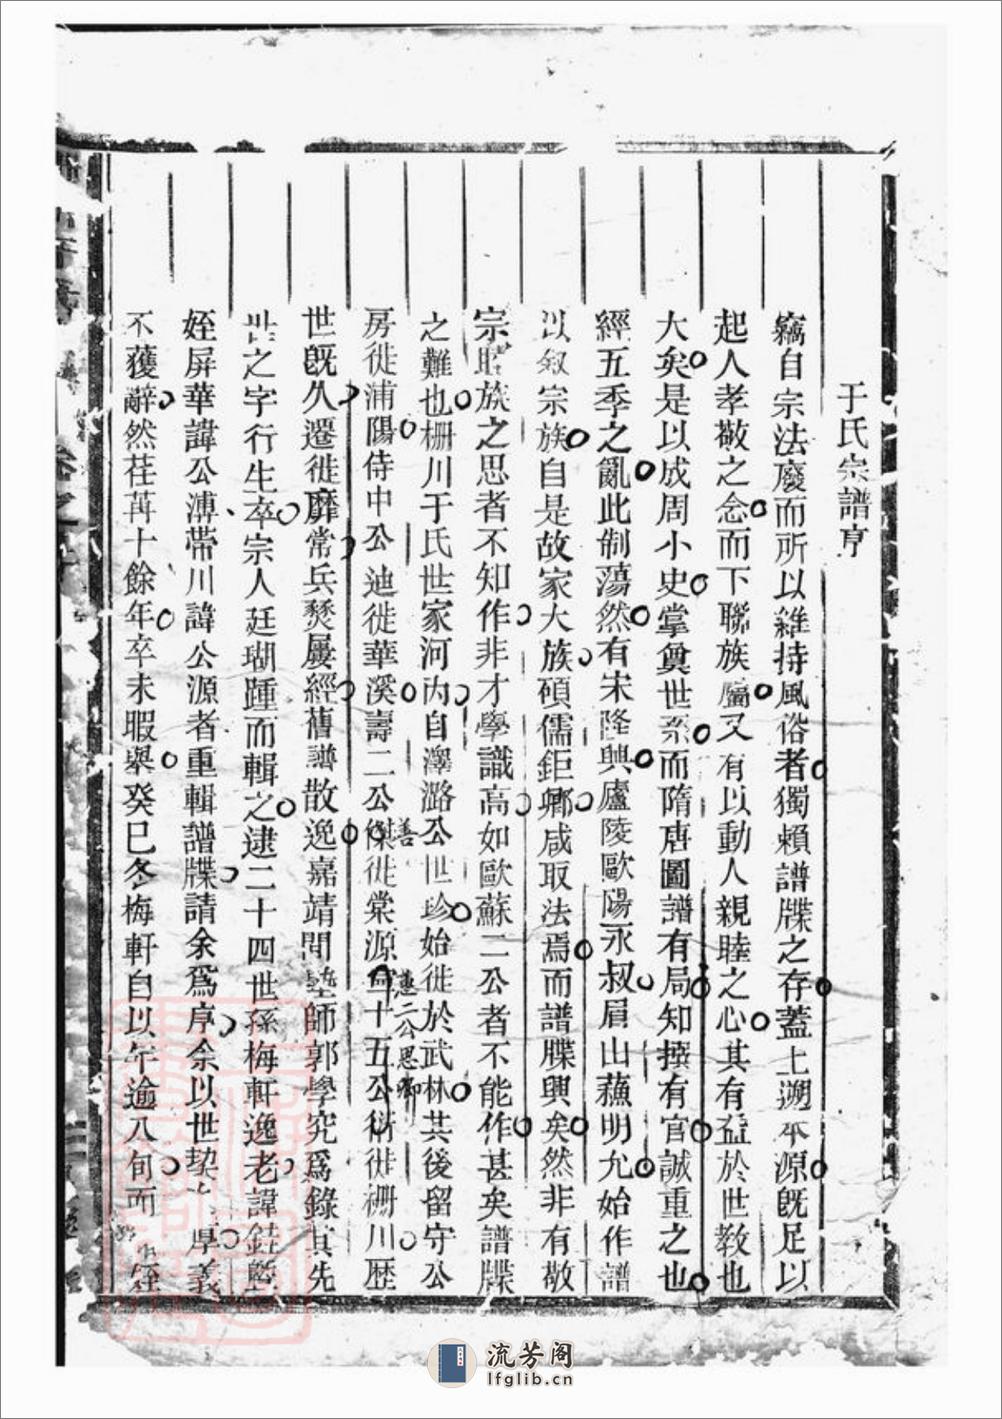 于氏宗譜序
竊自宗法廢而所以維持風俗者獨賴譜牒之存蓋上遡本源旣足以
起人孝敬之念而下聯族屬又有以動人親睦之心其有益於世教也
大矣是以成周小史掌奠世系而隋唐圖譜有局知撰有官誠重之也
經五季之亂此制蕩然有宋隆興廬陵歐陽永叔眉山蘇明允始作譜
以敘宗族自是故家大族碩儒鉅卿咸取法焉而譜牒興矣然非有敬
宗睦族之思者不知作非才學識高如歐蘇二公者不能作甚矣譜牒
之難也柵川于氏世家河內自澤潞公世珍始徙於武林其後留守公
房徙浦陽侍中公迪徙華溪壽二公傑善徙棠源 十五公惠二公恩卿衍徙柵川歷
世旣久遷徙靡常兵燹屢經舊譜散逸嘉靖間塾師郭學究爲錄其先
世之字行生卒宗人廷瑚踵而輯之逮二十四世孫梅軒逸老諱
姪屏華諱公溥帶川諱公源者重輯譜牒請余爲序余以世契 厚義
不獲辭然荏苒十餘年卒未暇舉癸巳冬梅軒自以年逾八旬而 姪
流芳阁
lfglib.cn